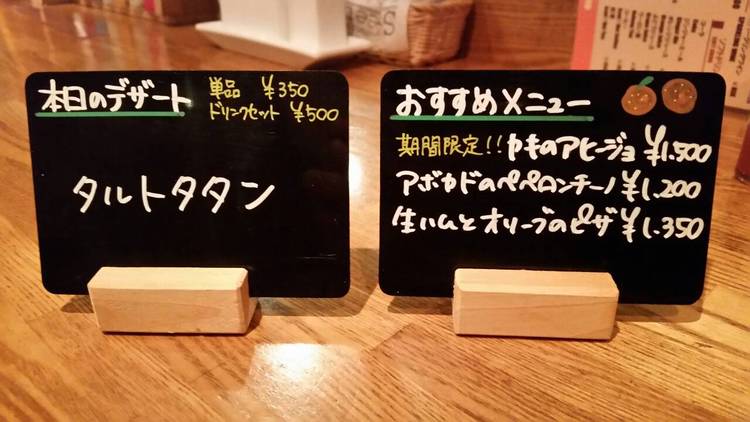 本日のデザート
単品 ¥350
ドリンクセット ¥500
タルトタタン
おすすめメニュー
期間限定!! カキのアヒージョ ¥1.500
アボカドのペペロンチーノ ¥1.200
生ハムとオリーブのピザ ¥1.350